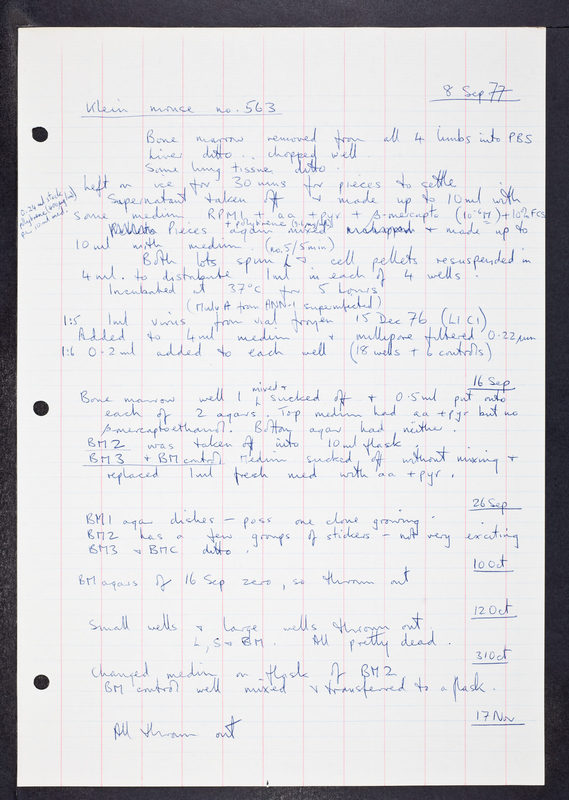 8 Sep 77
Klein mouse no. 563
Bone marrow removed from all 4 limbs into PBS
Liver ditto .. chopped well
Some lung tissue ditto.
Left on ice for 30 mins for pieces to settle
Supernatant taken off & made up to 10 ml with
some medium RPMI + aa + pyr + β-mercapto (10⁻⁴M) + 10% FCS
+ polybrene
0.24 ml stock
polybrene
per 10 ml med.
Pieces again mixed & made up to
10 ml with medium. (no. 5/5min)
Both lots spun & cell pellets resuspended in
4 ml. to distribute 1 ml in each of 4 wells.
Incubated at 37°C for 5 hours
(MuLV A from ANN-1 superinfected)
1:5 1ml virus from vial frozen 15 Dec 76 (L1 C1)
Added to 4ml medium & millipore filtered 0.22 µm
1:6 0.2 ml added to each well (18 wells + 6 controls)
16 Sep
Bone marrow well 1 mixed & sucked off & 0.5 ml put onto
each of 2 agars. Top medium had aa + pyr but no
β-mercaptoethanol. Bottom agar had neither.
BM2 was taken off into 10 ml flask.
BM3 & BM control Medium sucked off without mixing &
replaced 1ml fresh med with aa + pyr.
26 Sep
BM1 agar dishes – poss one clone growing.
BM2 has a few groups of stickers – not very exciting
BM3 & BMC ditto.
10 Oct
BM agars of 16 Sep zero, so thrown out
12 Oct
Small wells & large wells thrown out.
L, S & BM. All pretty dead.
31 Oct
Changed medium on flask of BM2
BM control well mixed & transferred to a flask.
17 Nov
All thrown out